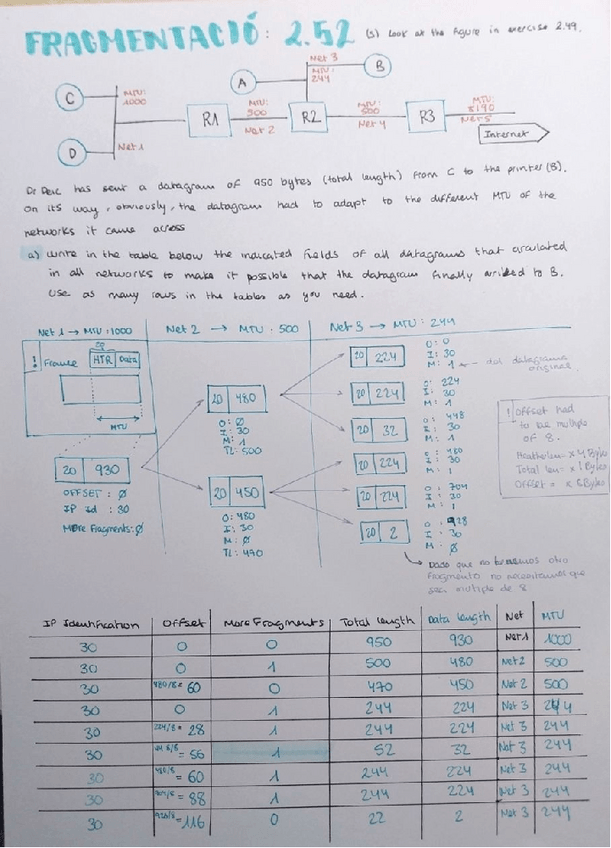 FRAGMENTACIÓ: 2.52 (s) Look at the figure in exercise 2.49.
Net 3
MTU:
244
A
B
C
MTU:
1000
R1
MTU:
500
Net 2
R2
MTU:
500
Net 4
R3
MTU:
8190
Net 5
D
Net 1
Internet
has sent a datagram of 950 bytes (total length) from C to the printer (B).
On its way, obviously, the datagram had to adapt to the different MTU of the
networks it came across
a) Write in the table below the indicated fields of all datagrams that circulated
in all networks to make it possible that the datagram finally arrived to B.
Use as many rows in the tables as you need.
Net 1 → MTU: 1000
Net 2 → MTU: 500
Net 3 → MTU: 244
! Frame
IP
HTR Data
MTU
20 930
OFFSET: Ø
IP Id : 30
More Fragments: Ø
20 480
O: Ø
I: 30
M: 1
TL: 500
20 450
O: 480
I: 30
M: Ø
TL: 470
20 224
O: 0
I: 30
M: 1 ← del datagrama
original.
20 224
O: 224
I: 30
M: 1
20 32
O: 448
I: 30
M: 1
20 224
O: 480
I: 30
M: 1
20 224
O: 704
I: 30
M: 1
20 2
O: 928
I: 30
M: Ø
! Offset had
to be multiple
of 8.
x 4 Bytes
Total len= x 1 Bytes
Offset = x 8 Bytes
Dado que no tenemos otro
fragmento no necesitamos que
sea múltiple de 8
IP Identification Offset More Fragments Total length Data length Net MTU
30 0 0 950 930 Net 1 1000
30 0 1 500 480 Net 2 500
30 480/8= 60 0 470 450 Net 2 500
30 0 1 244 224 Net 3 244
30 224/8= 28 1 244 224 Net 3 244
30 448/8 = 56 1 52 32 Net 3 244
30 480/8 = 60 1 244 224 Net 3 244
30 704/8 = 88 1 244 224 Net 3 244
30 928/8= 116 0 22 2 Net 3 244